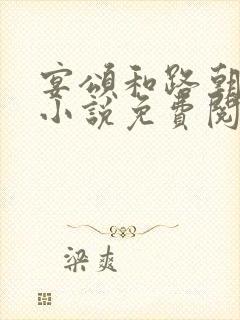 宴頌和路朝
小說免費閱
梁爽